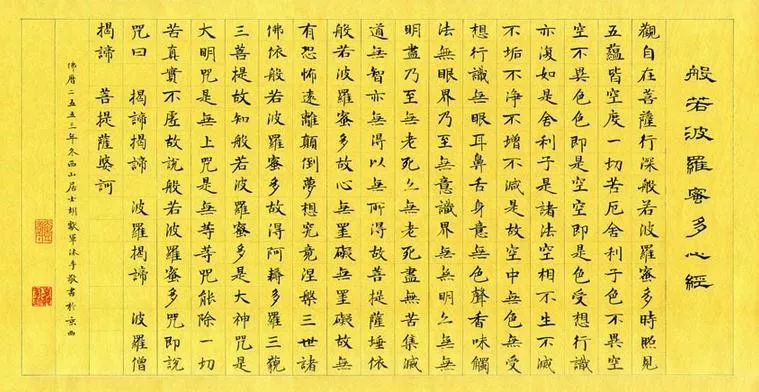 般若波羅蜜多心經
觀自在菩薩行深般若波羅蜜多時照見
五蘊皆空度一切苦厄舍利子色不異空
空不異色色即是空空即是色受想行識
亦復如是舍利子是諸法空相不生不滅
不垢不淨不增不減是故空中無色無受
想行識無眼耳鼻舌身意無色聲香味觸
法無眼界乃至無意識界無無明亦無無
明盡乃至無老死亦無老死盡無苦集滅
道無智亦無得以無所得故菩提薩埵依
般若波羅蜜多故心無罣礙無罣礙故無
有恐怖遠離顛倒夢想究竟涅槃三世諸
佛依般若波羅蜜多故得阿耨多羅三藐
三菩提故知般若波羅蜜多是大神咒是
大明咒是無上咒是無等等咒能除一切
苦真實不虛故說般若波羅蜜多咒即說
咒曰 揭諦揭諦 波羅揭諦 波羅僧
揭諦 菩提薩婆訶
佛曆二五五三年冬西山居士胡獻軍沐手敬書於京西